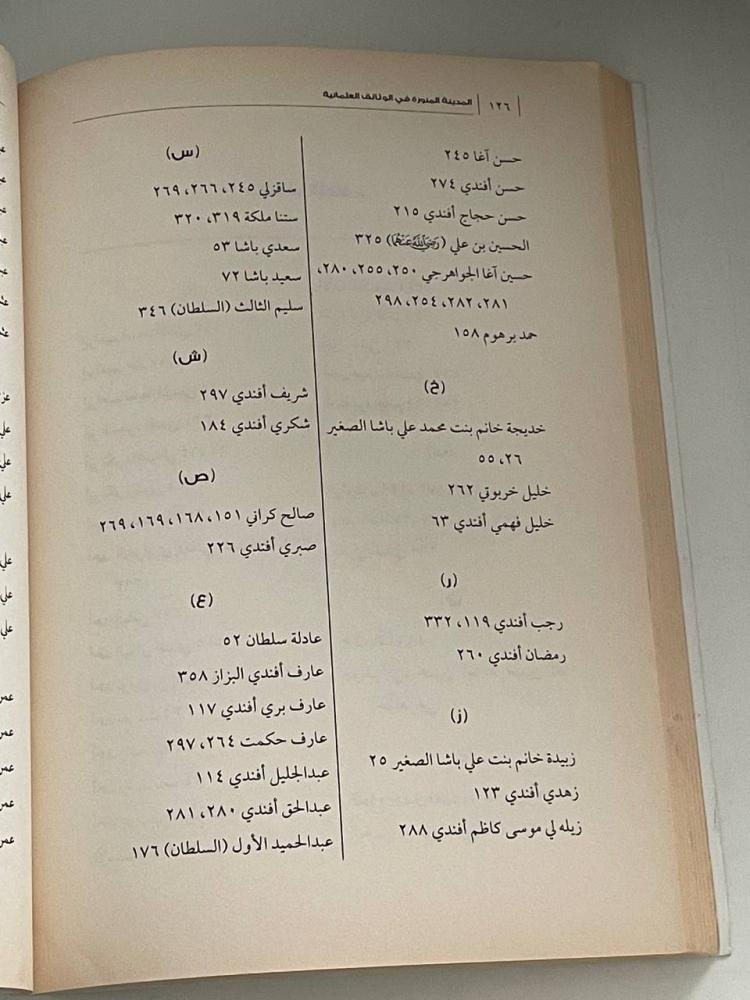 ١٢٦ | المدينة المنورة في الوثائق العثمانية
حسن آغا ٢٤٥
حسن أفندي ٢٧٤
حسن حجاج أفندي ٢١٥
الحسين بن علي (رضي الله عنهما) ٣٢٥
حسين آغا الجواهرجي ٢٥٠، ٢٥٥، ٢٨٠،
٢٨١، ٢٨٢، ٢٥٤، ٢٩٨
حمد برهوم ١٥٨
(خ)
خديجة خانم بنت محمد علي باشا الصغير
٢٦، ٥٥
خليل خربوتي ٢٦٢
خليل فهمي أفندي ٦٣
(ر)
رجب أفندي ١١٩، ٣٣٢
رمضان أفندي ٢٦٠
(ز)
زبيدة خانم بنت علي باشا الصغير ٢٥
زهدي أفندي ١٢٣
زيله لي موسى كاظم أفندي ٢٨٨
(س)
ساقزلي ٢٤٥، ٢٦٦، ٢٦٩
ستنا ملكة ٣١٩، ٣٢٠
سعدي باشا ٥٣
سعيد باشا ٧٢
سليم الثالث (السلطان) ٣٤٦
(ش)
شريف أفندي ٢٩٧
شكري أفندي ١٨٤
(ص)
صالح كراني ١٥١، ١٦٨، ١٦٩، ٢٦٩
صبري أفندي ٢٢٦
(ع)
عادلة سلطان ٥٢
عارف أفندي البزاز ٣٥٨
عارف بري أفندي ١١٧
عارف حكمت ٢٦٤، ٢٩٧
عبدالجليل أفندي ١١٤
عبدالحق أفندي ٢٨٠، ٢٨١
عبدالحميد الأول (السلطان) ١٧٦